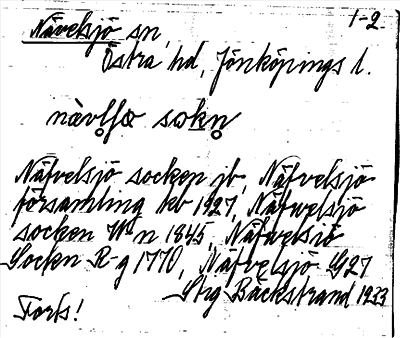 1-2
Nävelsjö sn,
Östra hd, Jönköpings l.
Näfvelsjö socken jb, Näfvelsjö
församling kb 1927, Näfwelsjö
socken Wn 1845, Näfwelsiö
Socken R-g 1770, Näfvelsjö G27
Strg Bäckstrand 1933
Forts!